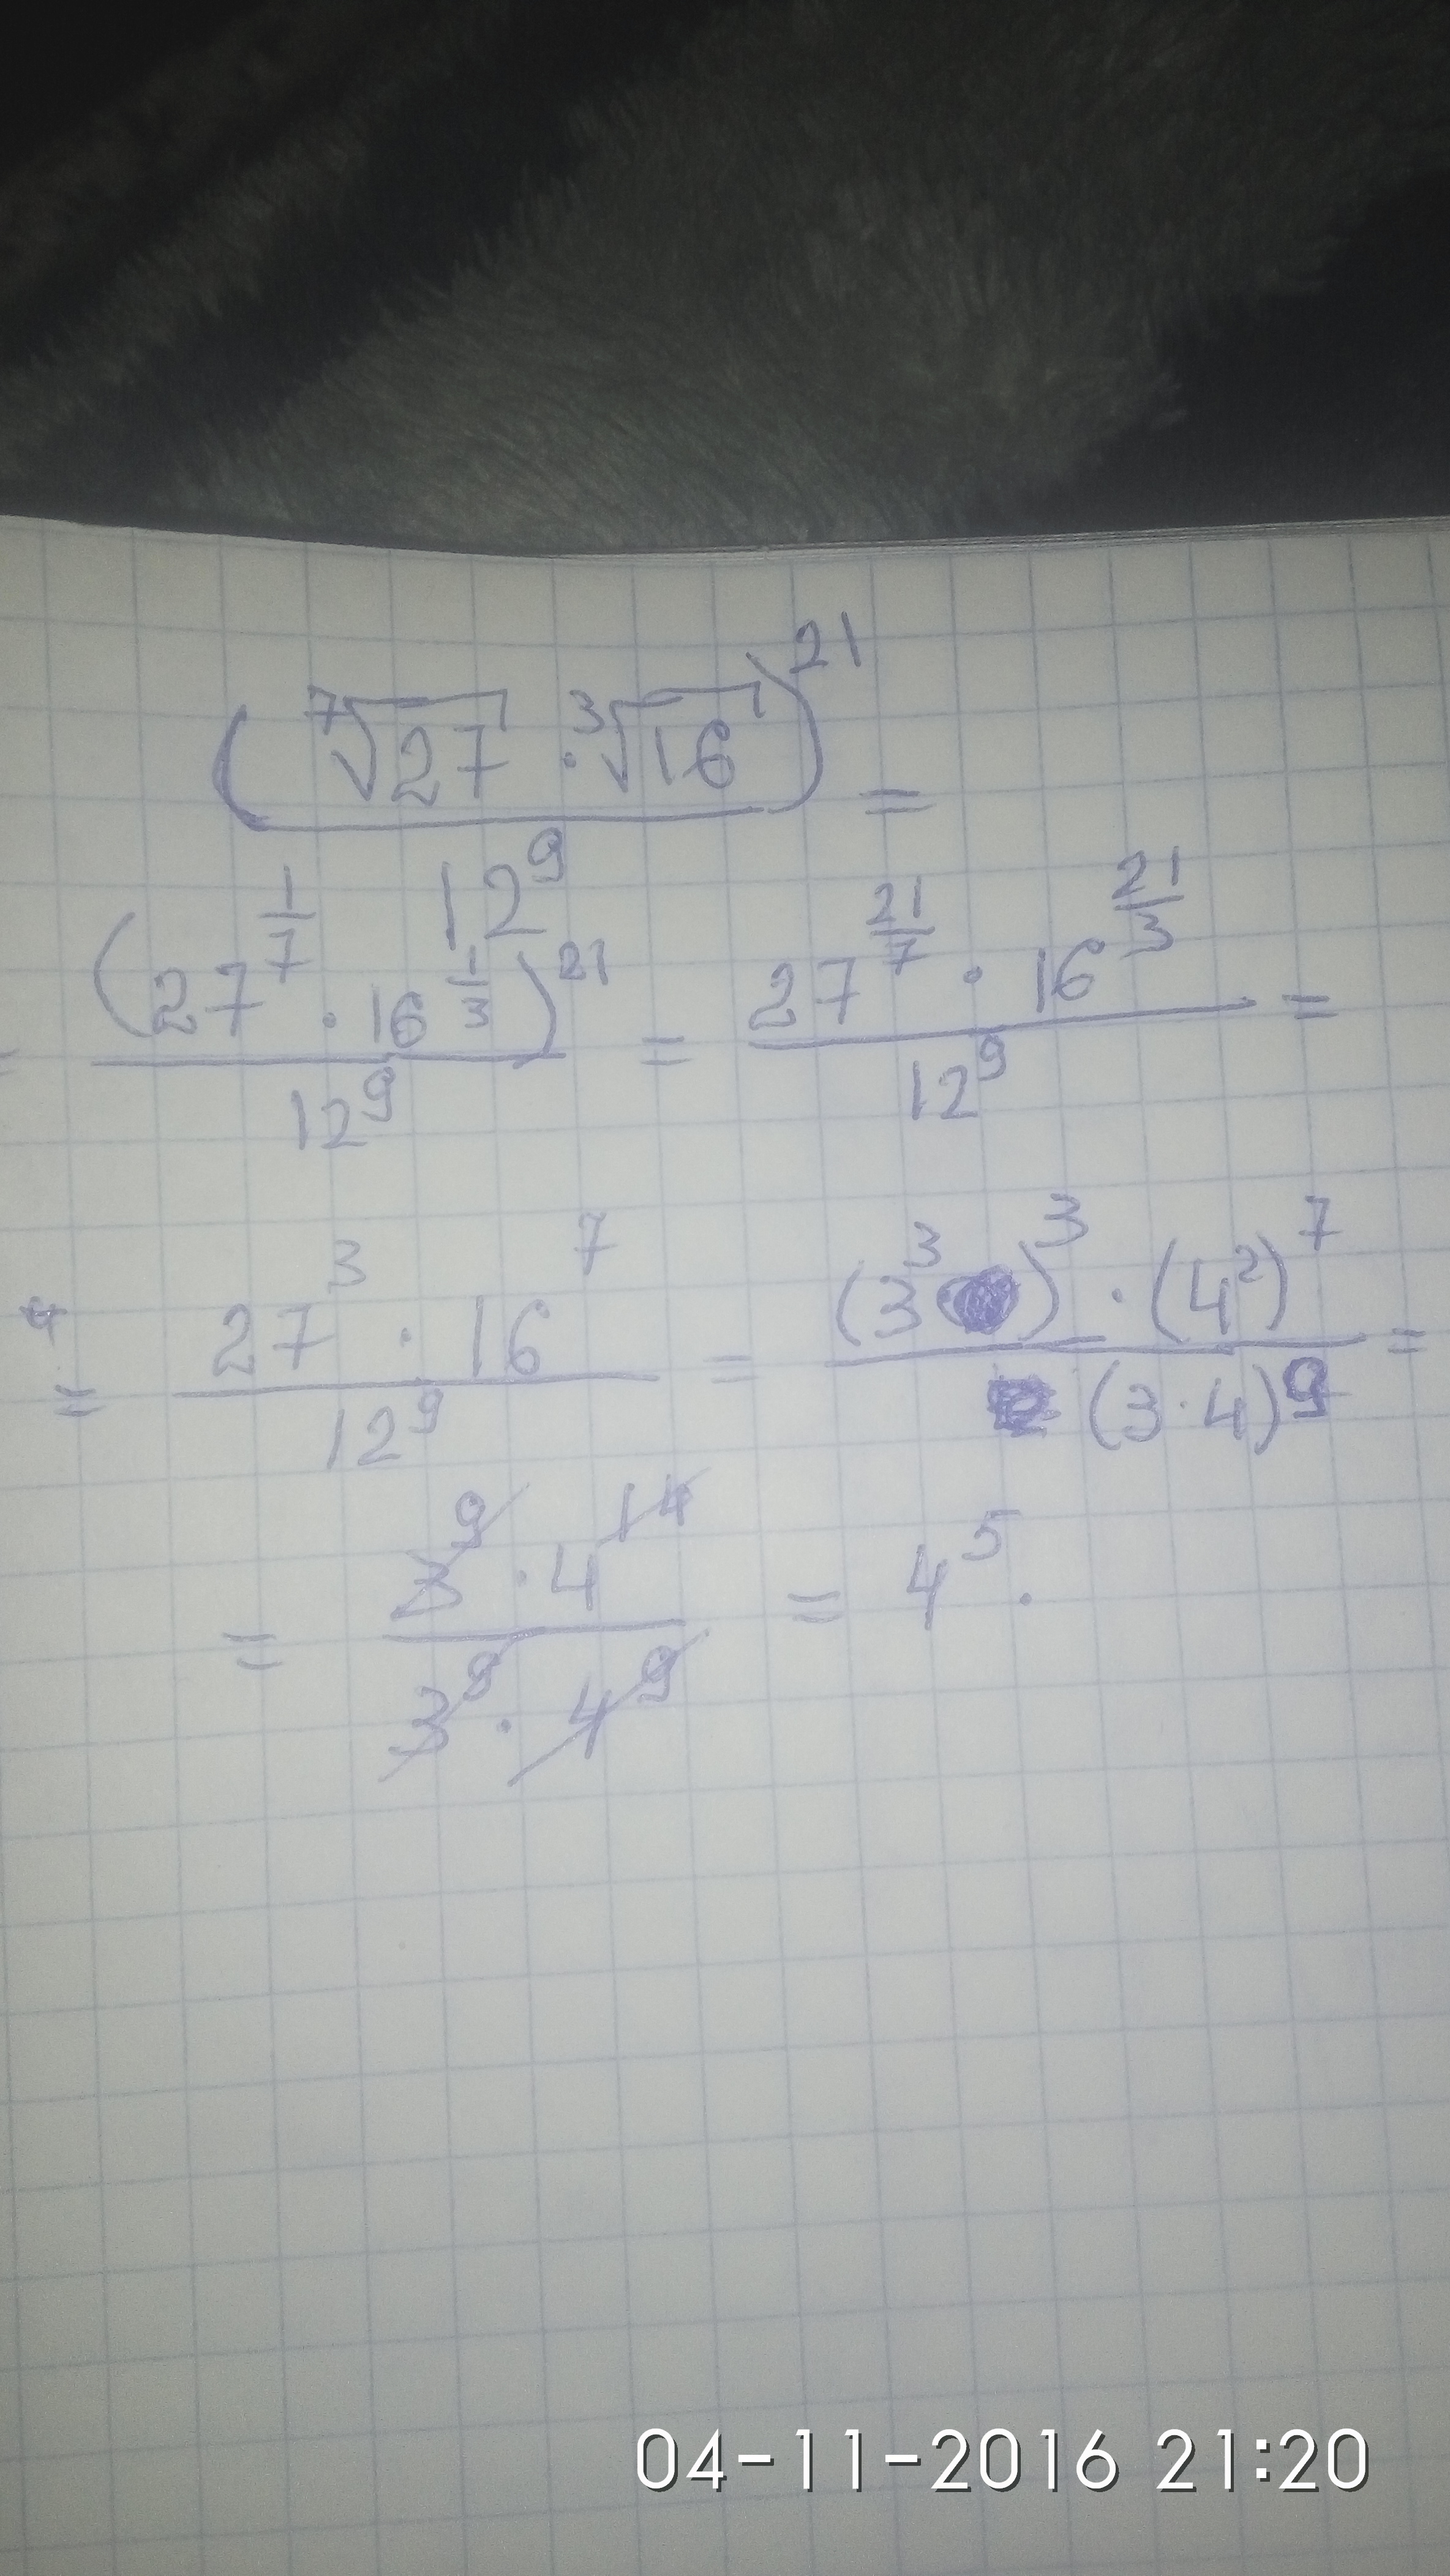 (⁷√27 · ³√16)²¹ / 12⁹ =
= (27^(1/7) · 16^(1/3))²¹ / 12⁹ = 27^(21/7) · 16^(21/3) / 12⁹ =
= 27³ · 16⁷ / 12⁹ = (3³)³ · (4²)⁷ / (3·4)⁹ =
= 3⁹ · 4¹⁴ / 3⁹ · 4⁹ = 4⁵.
04-11-2016 21:20